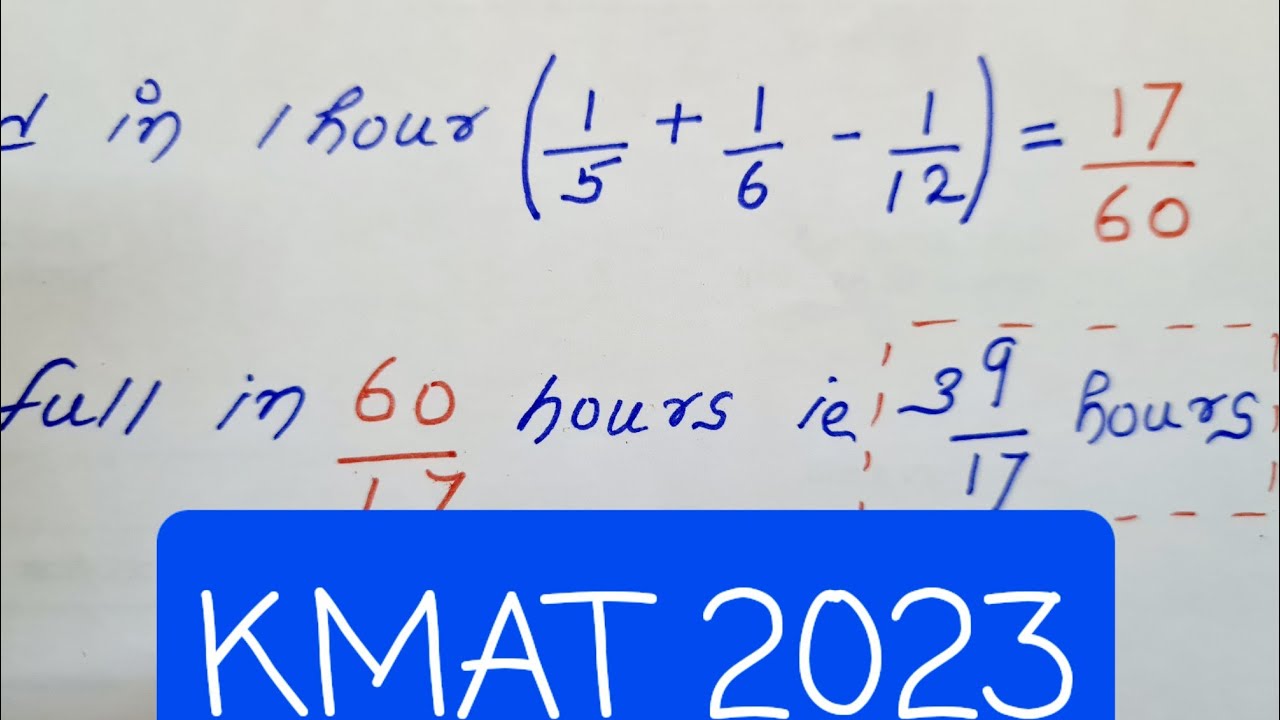 in 1 hour (1/5 + 1/6 - 1/12) = 17/60
full in 60/17 hours ie 3 9/17 hours
KMAT 2023